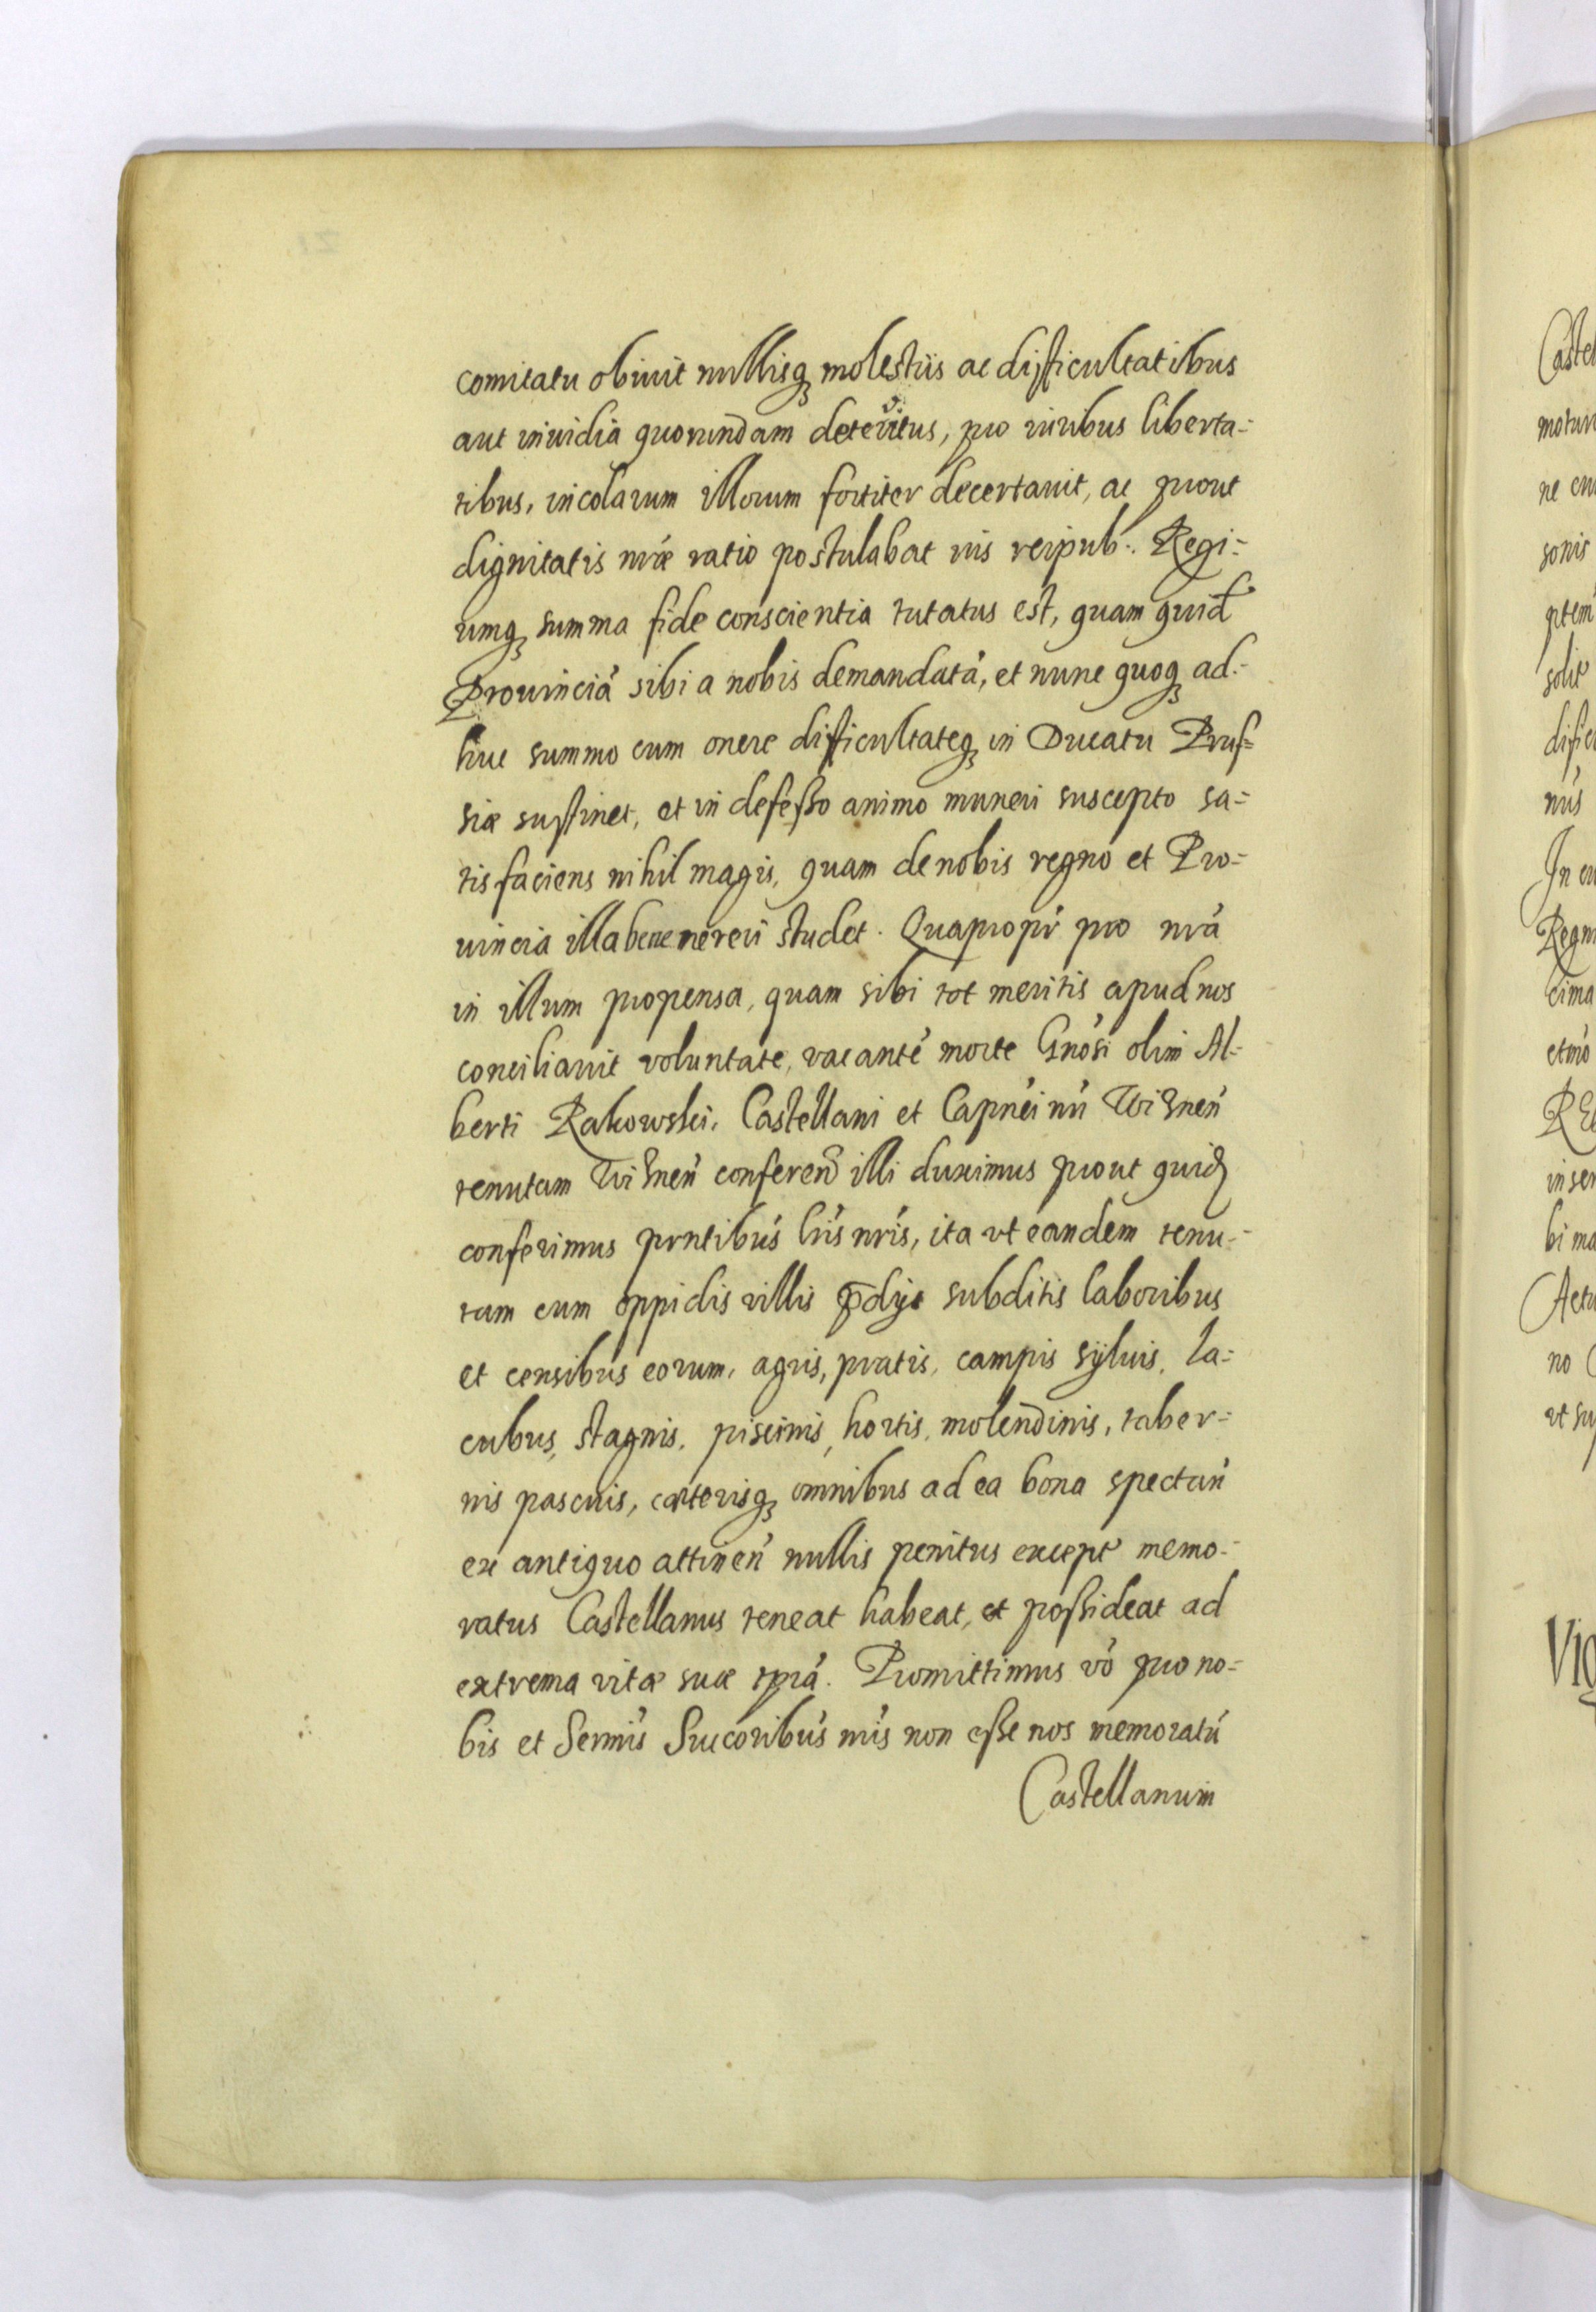 comitatu obiuit nullisq molestiis ac difficultatibus
aut inuidia quorundam deteritus, pro viribus liberta-
tibus, incolarum illorum fortiter decertauit, ac prout
dignitatis nrae ratio postulabat ius reipub. Regi-
umq summa fide conscientia tutatus est, quam quid
Prouinciā sibi a nobis demandatā, et nunc quoq ad-
huc summo cum onere difficultateq in Ducatu Prus-
siae sustinet, et in defesso animo muneri suscepto sa-
tisfaciens nihil magis, quam de nobis regno et Pro-
uincia illa bene mereri studet. Quapropr pro nrā
in illum propensa, quam sibi tot meritis apud nos
conciliauit voluntate, vacante morte Gnosi olim Al-
berti Rakowski, Castellani et Capnei nri Wiznen
tenutam Wiznen conferend illi duximus prout quid
conferimus prntibus lris nris, ita vt eandem tenu-
tam cum oppidis villis pdijs subditis laboribus
et censibus eorum, agris, pratis, campis syluis, la-
cubus, stagnis, piscinis, hortis, molendinis, taber-
nis pascuis, caeterisq omnibus ad ea bona spectan
ex antiquo attinen nullis penitus except memo-
ratus Castellanus teneat habeat, et possideat ad
extrema vitae suae tpra. Promittimus vo pro no-
bis et Sermis Succoribus nris non esse nos memoratū
Castellanum
Castel
ne
sonis
solit
nus
Regn
cima
REG
bi ma
no